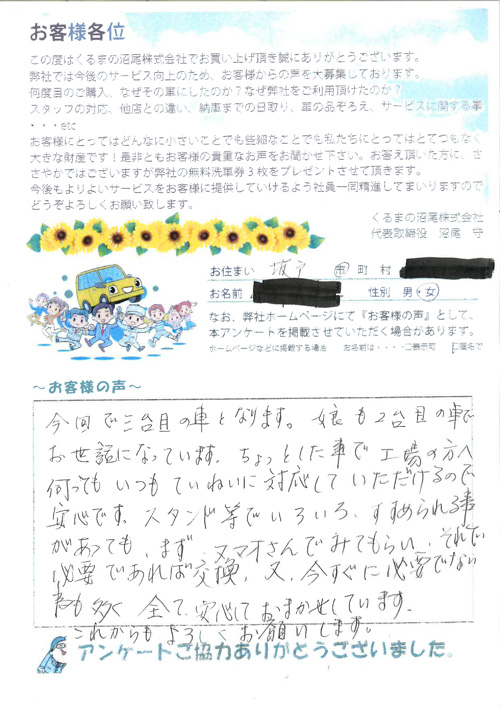 お客様各位
この度はくるまの沼尾株式会社でお買い上げ頂き誠にありがとうございます。
弊社では今後のサービス向上のため、お客様からの声を大募集しております。
何度目のご購入、なぜその車にしたのか?なぜ弊社をご利用頂けたのか?
スタッフの対応、他店との違い、納車までの日取り、車の品ぞろえ、サービスに関する事
・・・etc
お客様にとってはどんなに小さいことでも些細なことでも私たちにとってはとてつもなく
大きな財産です!是非ともお客様の貴重なお声をお聞かせ下さい。お答え頂いた方に、さ
さやかではございますが弊社の無料洗車券3枚をプレゼントさせて頂きます。
今後もよりよいサービスをお客様に提供していけるよう社員一同精進してまいりますので
どうぞよろしくお願い致します。
くるまの沼尾株式会社
代表取締役 沼尾 守
お住まい 坂戸 市 町 村
お名前 性別 男・女
なお、弊社ホームページにて『お客様の声』として、
本アンケートを掲載させていただく場合があります。
ホームページなどに掲載する場合 お名前は・・・・□表示可 □匿名で
~お客様の声~
今回で三台目の車となります。娘も2台目の車で
お世話になっています。ちょっとした事で工場の方へ
伺っても いつも ていねいに 対応して いただけるので
安心です。スタンド等で いろいろ、すすめられる事
があっても、まず、ヌマオさんで みてもらい、それで
必要であれば交換、又、今すぐに必要でない
事も多く 全て、安心して おまかせしています。
これからも よろしく お願いします。
アンケートご協力ありがとうございました。